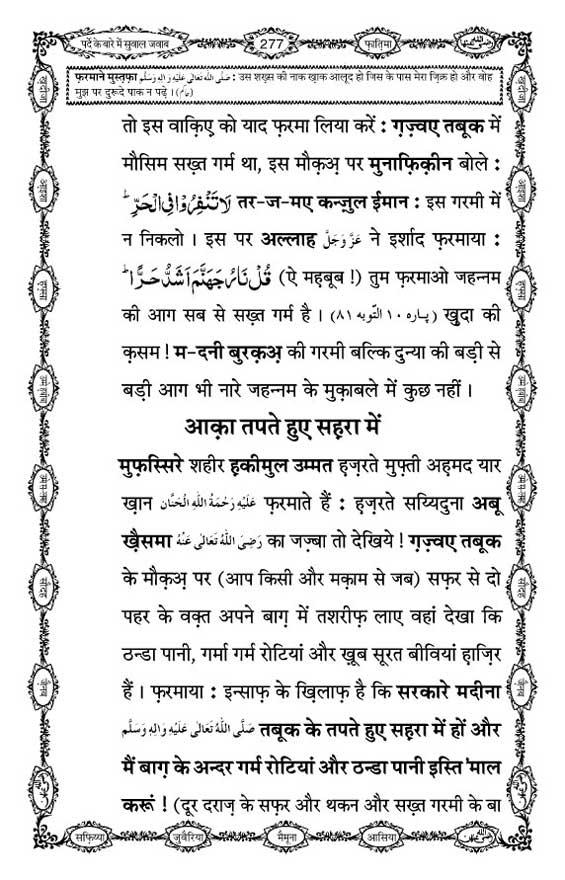 पर्दे के बारे में सुवाल जवाब 277 फ़ातिमा
फ़रमाने मुस्तफ़ा صَلَّى اللهُ تَعَالٰى عَلَيْهِ وَاٰلِهٖ وَسَلَّم : उस शख़्स की नाक ख़ाक आलूद हो जिस के पास मेरा ज़िक्र हो और वोह
मुझ पर दुरूदे पाक न पढ़े । (حاکم)
तो इस वाक़िए को याद फ़रमा लिया करें : ग़ज़्वए तबूक में
मौसिम सख़्त गर्म था, इस मौक़अ़ पर मुनाफ़िक़ीन बोले :
لَا تَنْفِرُوْا فِی الْحَرِّؕ तर-ज-मए कन्ज़ुल ईमान : इस गरमी में
न निकलो । इस पर अल्लाह عَزَّوَجَلَّ ने इर्शाद फ़रमाया :
قُلْ نَارُ جَهَنَّمَ اَشَدُّ حَرًّاؕ (ऐ महबूब !) तुम फ़रमाओ जहन्नम
की आग सब से सख़्त गर्म है । (پاره ١٠ التوبه ٨١) ख़ुदा की
क़सम ! म-दनी बुरक़अ़ की गरमी बल्कि दुन्या की बड़ी से
बड़ी आग भी नारे जहन्नम के मुक़ाबले में कुछ नहीं ।
आक़ा तपते हुए सह़रा में
मुफ़स्सिरे शहीर ह़कीमुल उम्मत ह़ज़रते मुफ़्ती अह़मद यार
ख़ान عَلَيْهِ رَحْمَةُ اللهِ الْحَنَّان फ़रमाते हैं : ह़ज़रते सय्यिदुना अबू
ख़ैसमा رَضِىَ اللهُ تَعَالٰى عَنْهُ का जज़्बा तो देखिये ! ग़ज़्वए तबूक
के मौक़अ़ पर (आप किसी और मक़ाम से जब) सफ़र से दो
पहर के वक़्त अपने बाग़ में तशरीफ़ लाए वहां देखा कि
ठन्डा पानी, गर्मा गर्म रोटियां और ख़ूब सूरत बीवियां ह़ाज़िर
हैं । फ़रमाया : इन्साफ़ के ख़िलाफ़ है कि सरकारे मदीना
صَلَّى اللهُ تَعَالٰى عَلَيْهِ وَاٰلِهٖ وَسَلَّم तबूक के तपते हुए सह़रा में हों और
मैं बाग़ के अन्दर गर्म रोटियां और ठन्डा पानी इस्ति'माल
करूं ! (दूर दराज़ के सफ़र और थकन और सख़्त गरमी के बा
सफ़िय्या जुवैरिया मैमूना आसिया